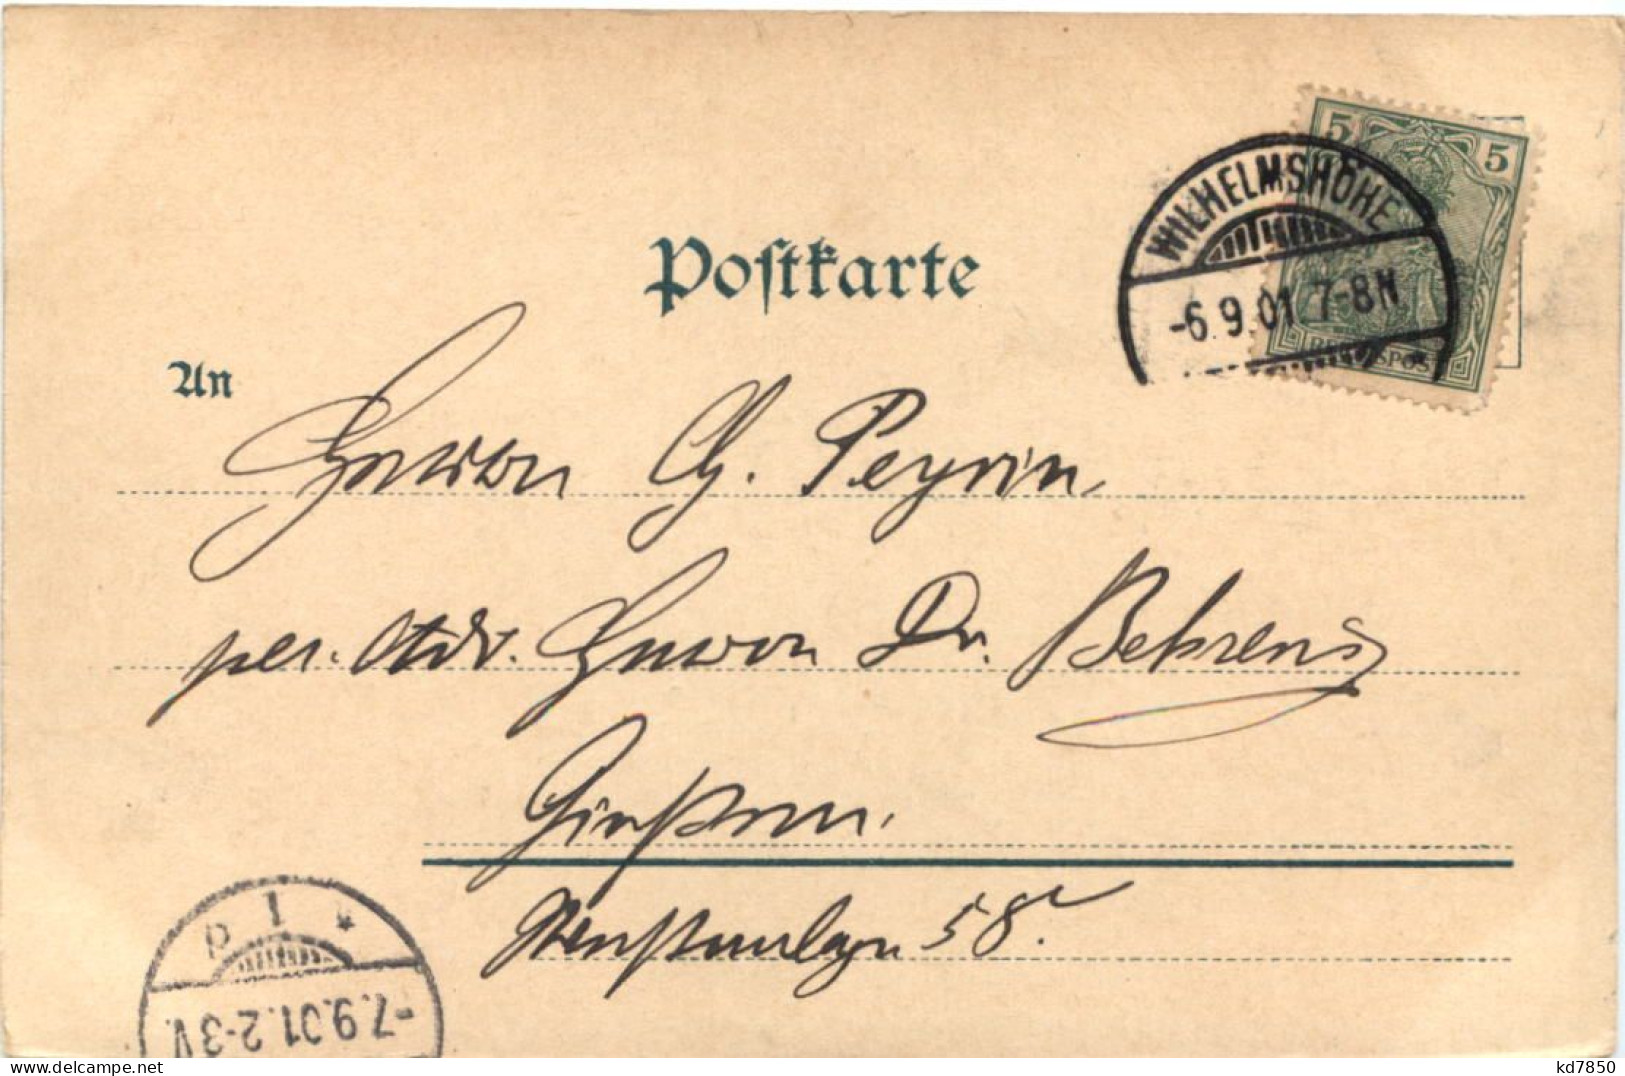 Postkarte
5 5
WILHELMSHÖHE
-6.9.01.7-8N.
REICHSPOST
An
Herrn Ch. Peyrin,
per. Adr. Herrn Dr. Behrens
Giessen.
58
-7.9.01.2-3V.
delcampe.net
kd7850